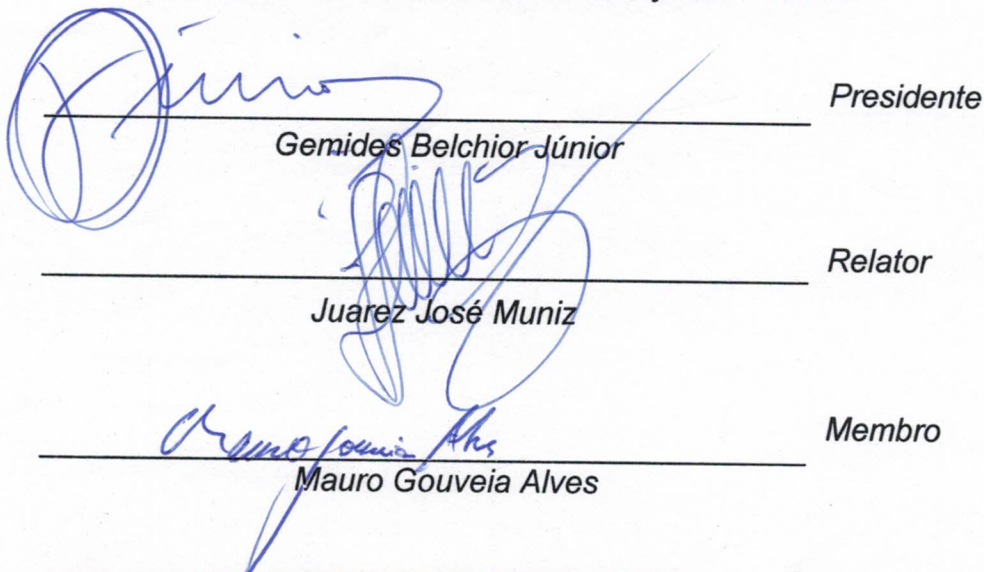 Presidente
Gemides Belchior Júnior
Relator
Juarez José Muniz
Mauro Gouveia Alves
Membro
Mauro Gouveia Alves